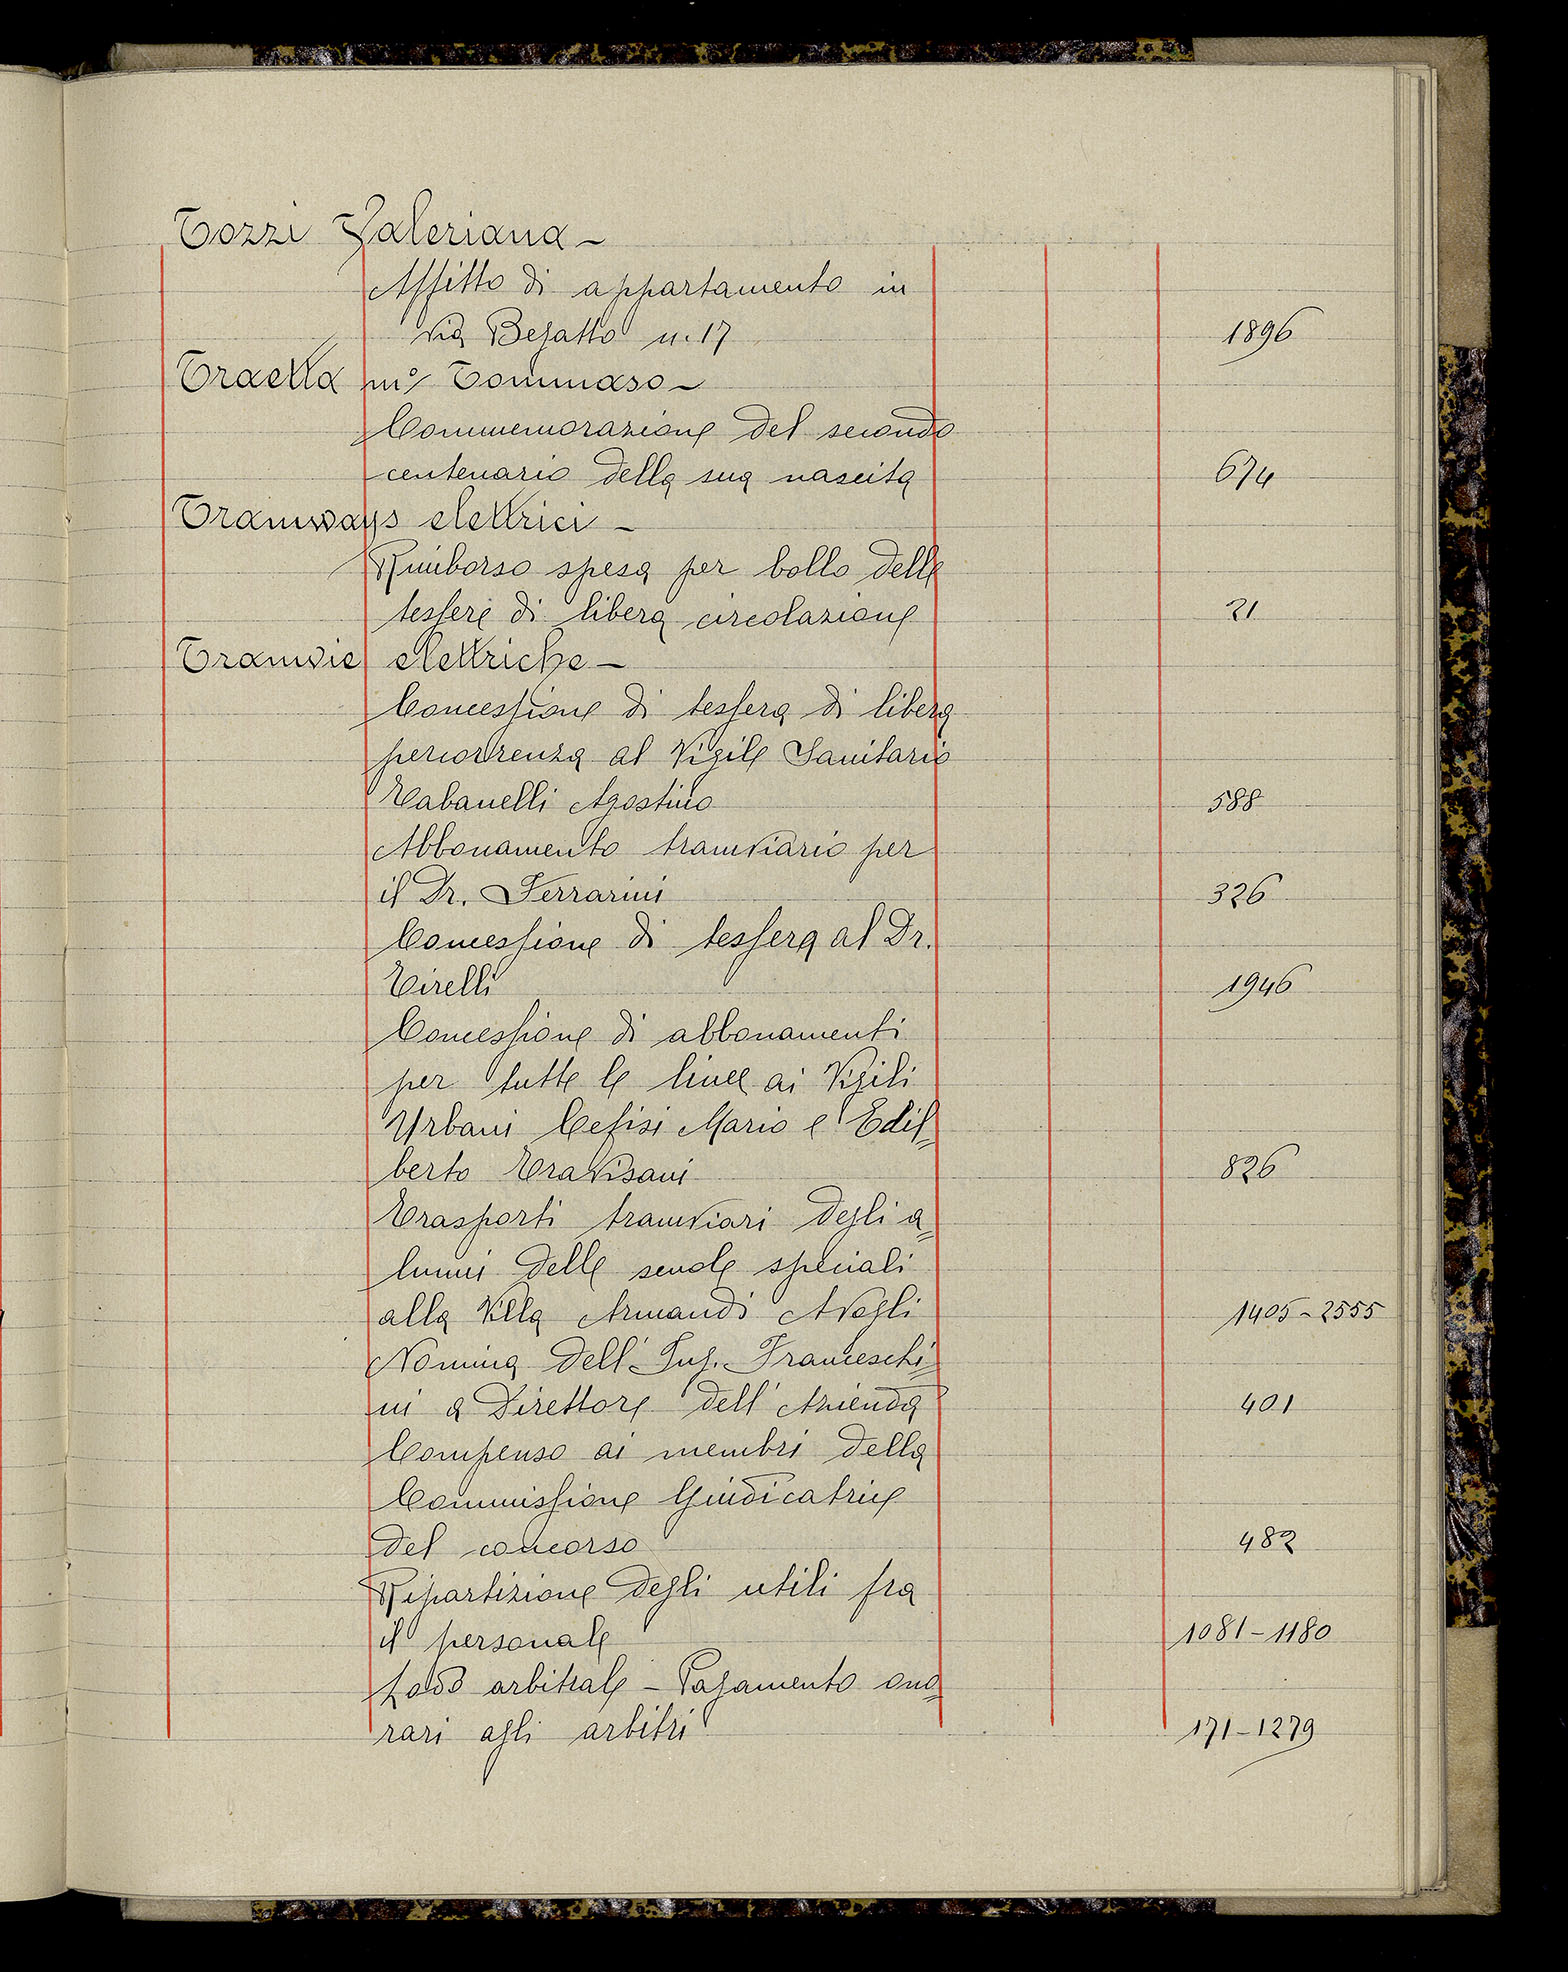 Tozzi Valeriana -
Affitto di appartamento in
via Begatto n. 17 1896
Traetta m° Tommaso -
Commemorazione del secondo
centenario della sua nascita 674
Tramways elettrici -
Rimborso spesa per bollo delle
tessere di libera circolazione 21
Tramvie elettriche -
Concessione di tessera di libera
percorrenza al Vigile Sanitario
Tabanelli Agostino 588
Abbonamento tramviario per
il Dr. Ferrarini 326
Concessione di tessera al Dr.
Tirelli 1946
Concessione di abbonamenti
per tutte le linee ai Vigili
Urbani Cefisi Mario e Edil=
berto Travisani 826
Trasporti tramviari degli a=
lunni delle scuole speciali
alla Villa Armandi Avogli 1405-2555
Nomina dell'Ing. Franceschi=
ni a Direttore dell'Azienda 401
Compenso ai membri della
Commissione Giudicatrice
del concorso 482
Ripartizione degli utili fra
il personale 1081-1180
Lodo arbitrale - Pagamento ono=
rari agli arbitri 171-1279